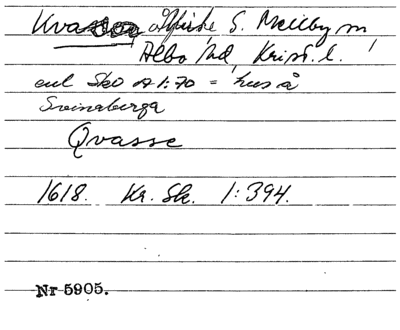 Kvasse, S. Mellby sn,
Albo hd, Krist. l.
enl SkO A1:70 = hus å
Svinaberga
Qvasse
1618. Kr. Sk. 1:394.
Nr 5905.